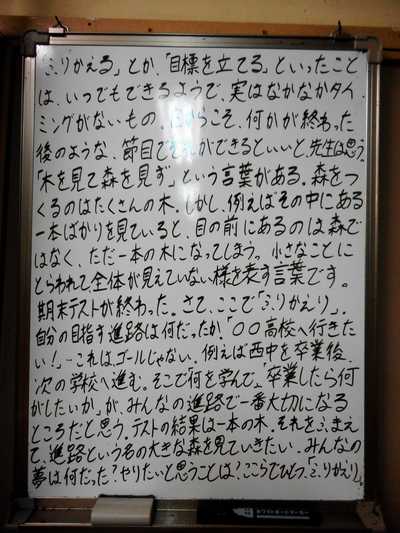 「ふりかえる」とか、「目標を立てる」といったこと
は、いつでもできるようで、実はなかなかタイ
ミングがないもの。だからこそ、何かが終わった
後のような、節目でそれができるといいと、先生は思う。
「木を見て森を見ず」という言葉がある。森をつ
くるのはたくさんの木。しかし、例えばその中にある
一本ばかりを見ていると、目の前にあるのは森で
はなく、ただ一本の木になってしまう。小さなことに
とらわれて全体が見えていない様を表す言葉です。
期末テストが終わった。さて、ここで「ふりかえり」。
自分の目指す進路は何だったか。「〇〇高校へ行きた
い!」-これはゴールじゃない。例えば西中を卒業後、
次の学校へ進む。そこで「何を学んで」、「卒業したら何
がしたいか」が、みんなの進路で一番大切になる
ところだと思う。テストの結果は一本の木。それをふまえ
て、進路という名の大きな森を見ていきたい。みんなの
夢は何だった?やりたいと思うことは!ここらでひとつ、「ふりかえり」。
ホワイトボードマーカー